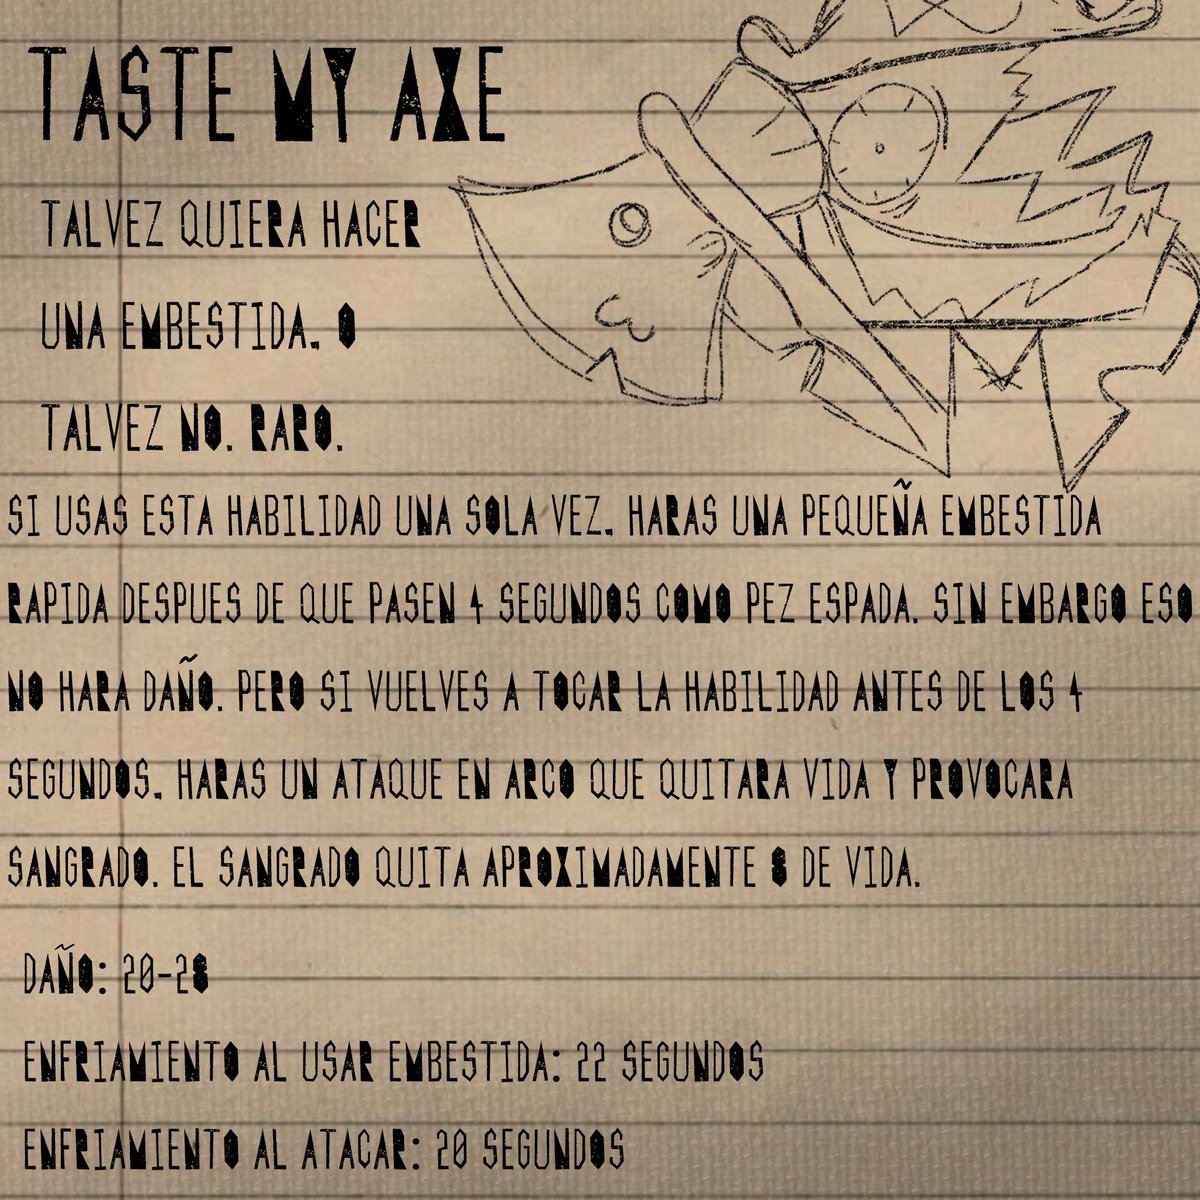 TASTE MY AXE
TALVEZ QUIERA HACER
UNA EMBESTIDA. O
TALVEZ NO. RARO.
SI USAS ESTA HABILIDAD UNA SOLA VEZ. HARAS UNA PEQUEÑA EMBESTIDA
RAPIDA DESPUES DE QUE PASEN 4 SEGUNDOS COMO PEZ ESPADA. SIN EMBARGO ESO
NO HARA DAÑO. PERO SI VUELVES A TOCAR LA HABILIDAD ANTES DE LOS 4
SEGUNDOS. HARAS UN ATAQUE EN ARCO QUE QUITARA VIDA Y PROVOCARA
SANGRADO. EL SANGRADO QUITA APROXIMADAMENTE 8 DE VIDA.
DAÑO: 20-28
ENFRIAMIENTO AL USAR EMBESTIDA: 22 SEGUNDOS
ENFRIAMIENTO AL ATACAR: 20 SEGUNDOS